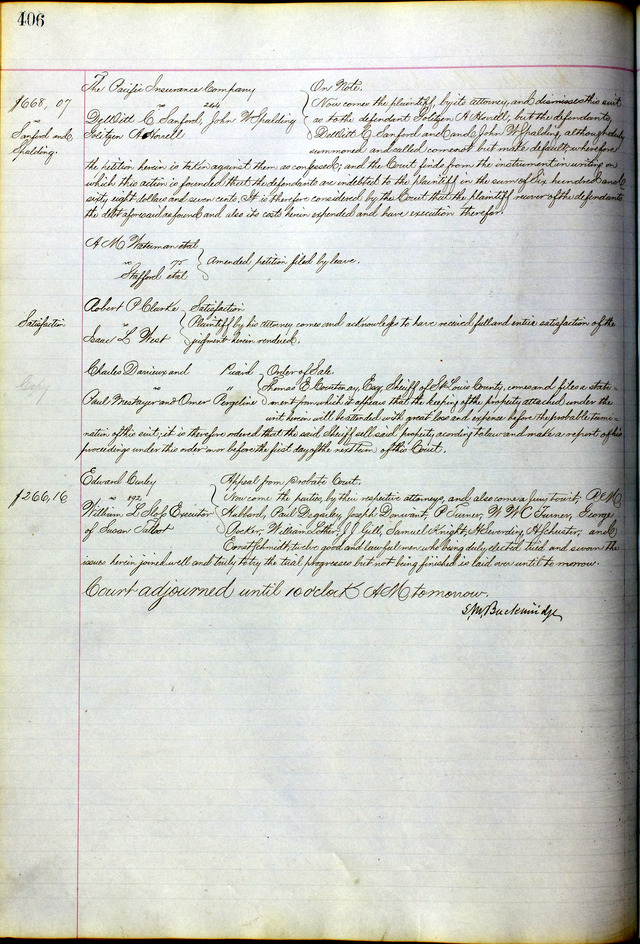 406
The Pacific Insurance Company
On Note.
$668,07
vs
Sanford and
Spalding
vs 264
DeWitt C Sanford, John W Spalding
Folitzen A Horrell
Now comes the plaintiff, by its attorney, and dismisses this suit
as to the defendant Folitzen A Horrell, but the defendants,
DeWitt C Sanford and and John W Spalding, although duly
summoned and called come not but make default; wherefore
the petition herein is taken against them as confessed; and the Court finds from the instrument in writing on
which this action is founded that the defendants are indebted to the plaintiff in the sum of Six hundred and
sixty eight dollars and seven cents. It is therefore considered by the Court that the plaintiff recover of the defendants
the debt aforesaid as found and also its costs herein expended and have execution therefor.
A M Waterman et al
vs 75
Stafford et al
Amended petition filed by leave.
Robert P Clarke
Satisfaction
Satisfaction
vs
Isaac L West
Plaintiff by his attorney comes and acknowledges to have received full and entire satisfaction of the
judgment herein rendered.
Charles Darieux and Picard
Order of Sale.
Copy
vs "
Paul Mestayer and Omer Pergeline
Thomas E Courtenay, Esq, Sheriff of St Louis County, comes and files a state-
ment from which it appears that the keeping of the property attached under the
writ herein will be attended with great loss and expense before the probable termi-
nation of this suit; it is therefore ordered that the said Sheriff sell said property according to law and make a report of his
proceedings under this order on or before the first day of the next term of this Court.
Edward Burley
Appeal from Probate Court.
$266,16
vs 892
William L Executor
of Susan Talbot
Now come the parties, by their respective attorneys, and also come a jury towit,
Hubbard, Paul Joseph Donovant, P Turner, W W C Turner, George
Rocker, William Lotter, J J Gill, Samuel Knight, A Schuster, and
Ernst Schmidt, twelve good and lawful men who being duly elected tried and sworn the
issues herein joined well and truly to try the trial progresses but not being finished is laid over until tomorrow.
Court adjourned until 10 o'clock A.M. tomorrow.
S. M. Breckinridge